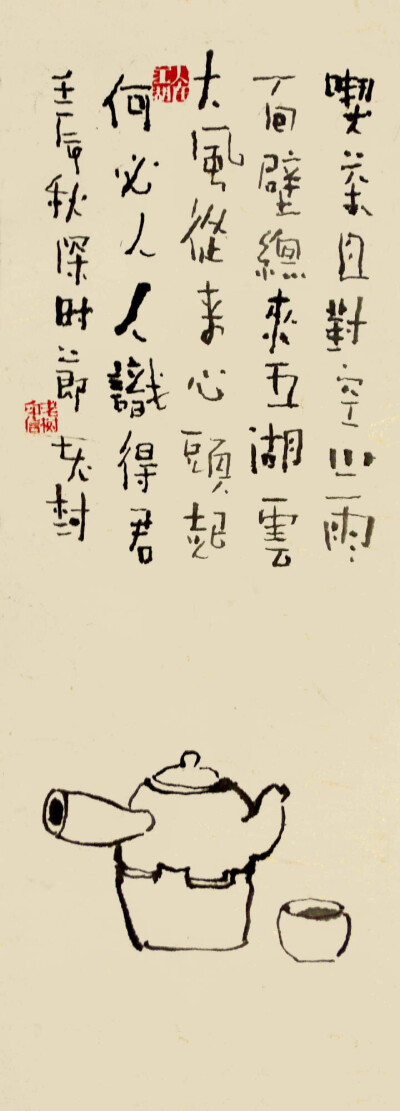 喫茶且對空山雨
面壁總來五湖雲
大風從來心頭起
何必人人識得君
壬辰秋深时節老树
人在江湖